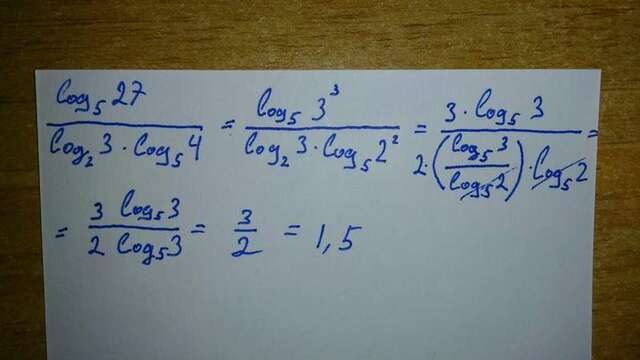 log₅27 / (log₂3 · log₅4) = log₅3³ / (log₂3 · log₅2²) = 3 · log₅3 / (2 · (log₅3 / log₅2) · log₅2) =
= 3 log₅3 / (2 log₅3) = 3/2 = 1,5